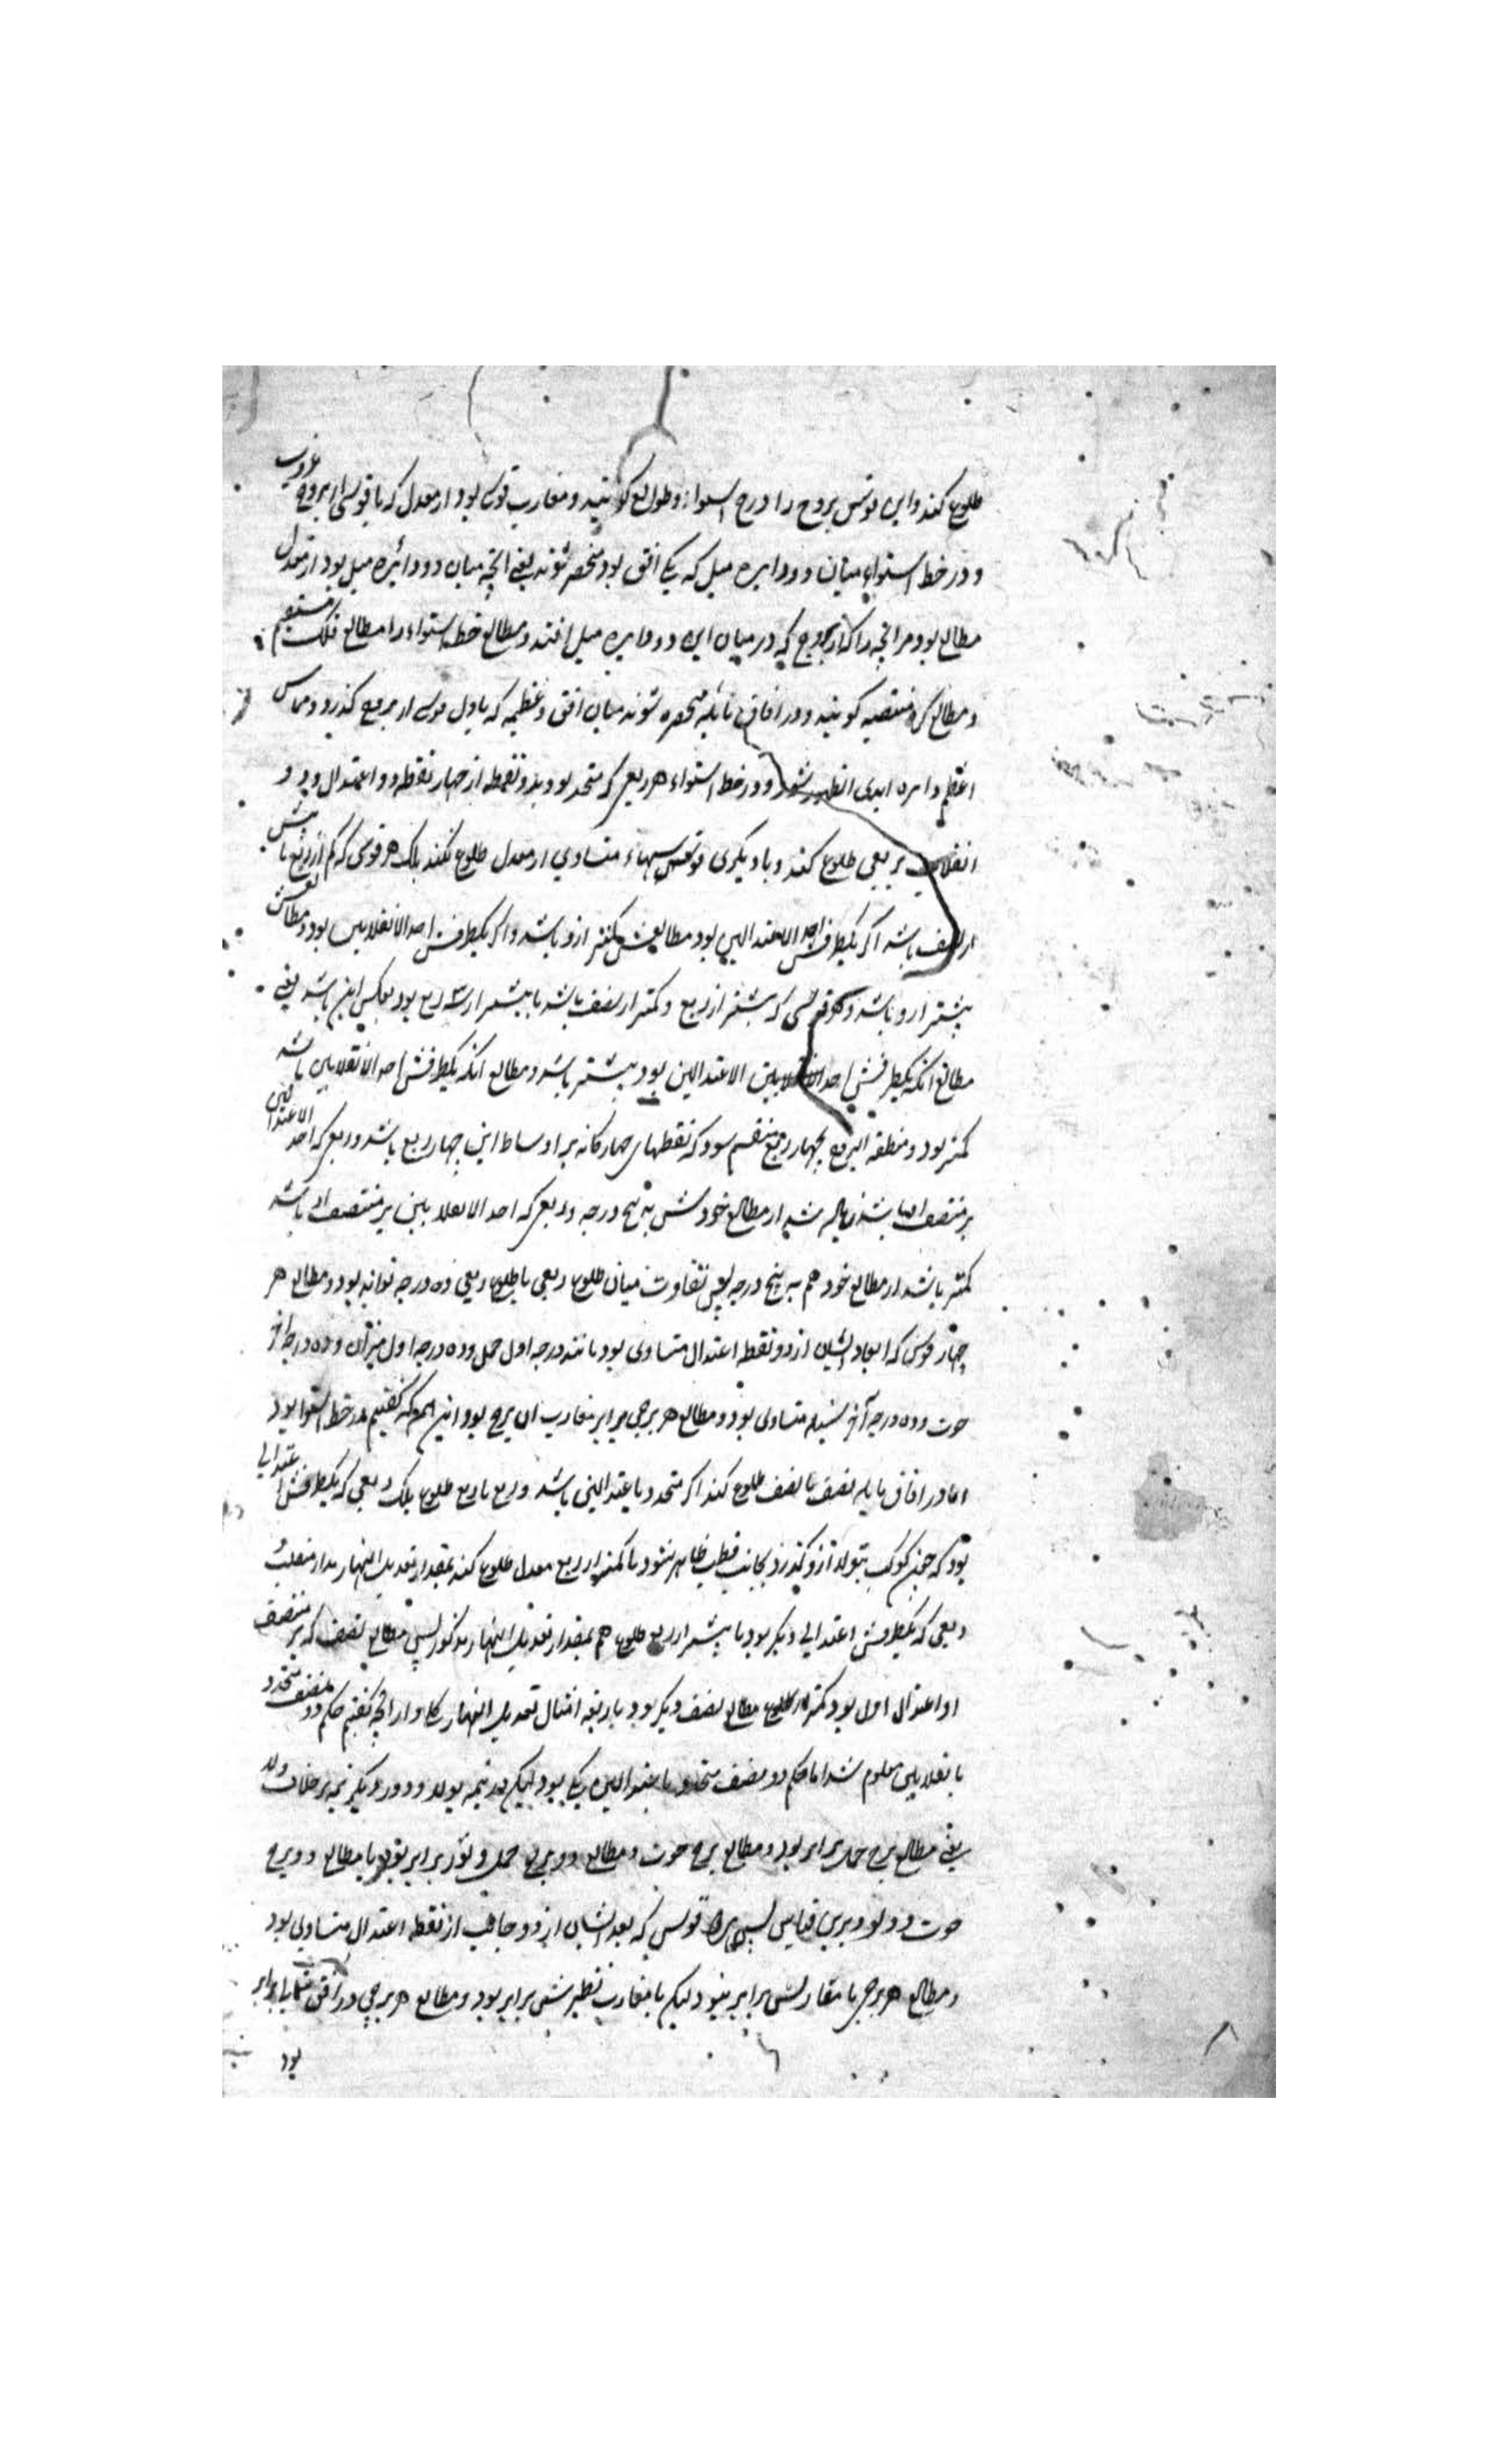 طلوع کند و این قوس بروج را درج السواء و طوالع کویند و مغارب قوسی بود از معدل که با قوسی از بروج غروب
و در خط استواء میان دو دایره میل که یکی افق بود منحصر شوند یعنی انچه میان دو دائره میل بود از معدل
مطالع بود مر انچه را که از بروج که در میان این دو دایره میل افتد و مطالع خط استواء را مطالع فلک مستقیم
و مطالع کره منتصبه کویند و در افاق مائله منحصره شوند میان افق و عظیمه که باول قوسی از بروج کذرد و مماس
اعظم دایره ابدی الظهور شود و در خط استواء هر ربعی که متحدد بود بدو نقطه از چهار نقطه دو اعتدال و دو
انقلاب بربعی طلوع کند و با دیکری قوسهاء متساوی از معدل طلوع نکند بلک هر قوسی که کم از ربع یا بیش
از نصف باشد اکر یکطرفش احد الاعتدالین بود مطالعش کمتر ازو باشد و اکر یکطرفش احد الانقلابین بود مطالعش
بیشتر ازو باشد و هر قوسی که بیشتر از ربع و کمتر از نصف باشد یا بیشتر از سه ربع بود بعکس این باشد یعنی
مطالع انکه یکطرفش احد الاعتدالین بود بیشتر باشد و مطالع انکه یکطرفش احد الانقلابین باشد
کمتر بود و منطقة البروج بچهار ربع منقسم شود که نقطهای چهارکانه بر اوساط این چهار ربع باشد و ربعی که احد الاعتدالین
بر منتصف ان باشد زیاده شد از مطالع خودش به پنج درجه و ربعی که احد الانقلابین بر منتصف او باشد
کمتر باشد از مطالع خود هم به پنج درجه پس تفاوت میان طلوع ربعی با طلوع ربعی ده درجه تواند بود و مطالع هر
چهار قوس که ابعاد ایشان از دو نقطه اعتدال متساوی بود مانند درجه اول حمل و ده درجه اول میزان و ده درجه آخر
حوت و ده درجه آخر سنبله متساوی بود و مطالع هر برجی برابر مغارب ان برج بود و این همه که کفتیم در خط استوا بود
اما در افاق مایله نصف با نصف طلوع کند اکر متحدد باعتدالین باشد و ربع با ربع طلوع بلک ربعی که یکطرفش اعتدالی
بود که چون کوکب بتولد ازو کذرد بجانب قطب ظاهر شود با کمتر از ربع معدل طلوع کند بمقدار تعدیل النهار مدار منقلب
و ربعی که یکطرفش اعتدالی دیکر بود با بیشتر از ربع طلوع هم بمقدار تعدیل النهار مذکور پس مطالع نصف که بر منتصف
او اعتدال اول بود کمتر از مطالع نصف دیکر بود باربعه امثال تعدیل النهار کلی و از انچه کفتیم حکم دو نصف متحدد
بانقلابین معلوم شد اما حکم دو نصف متحدد باعتدالین یکی بود لیکن در نیمه بولد و در دیکر نیمه بر خلاف ولد
یعنی مطالع برج حمل برابر بود و مطالع برج حوت و مطالع دو برج حمل و ثور برابر بود با مطالع دو برج
حوت و دلو و برین قیاس پس هر دو قوس که بعد ایشان از دو جانب از نقطه اعتدال متساوی بود
و مطالع هر برجی با مغاربش برابر نبود لیکن با مغارب نظیرش برابر بود و مطالع هر برجی در افق شمالی برابر
بود